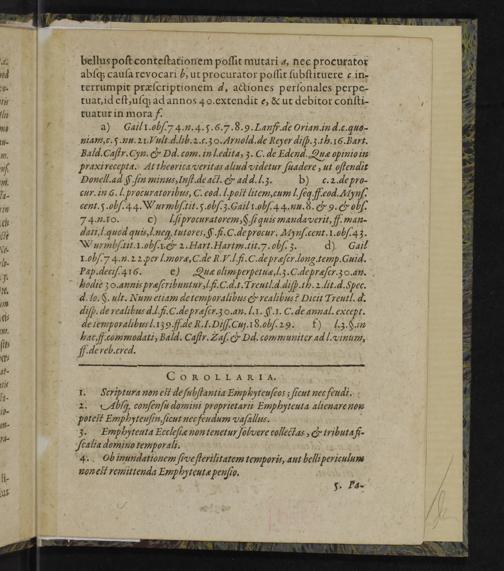 bellus post contestationem possit mutari a, nec procurator
absq; causa revocari b, ut procurator possit substituere c in-
terrumpit præscriptionem d, actiones personales perpe-
tuat, id est, usq; ad annos 40. extendit e, & ut debitor consti-
tuatur in mora f.
a) Gail 1. obs. 74. n. 4. 5. 6. 7. 8. 9. Lanfr. de Orian. in d. c. quo-
niam, c. 5. nu. 21. Vult. d. lib. 2. c. 30. Arnold. de Reyer disp. 3. th. 16. Bart.
Bald. Castr. Cyn. & Dd. com. in l. edita, 3. C. de Edend. Quæ opinio in
praxi recepta. At theorita veritas aliud videtur suadere, ut ostendit
Donell. ad §. sin minus, Inst. de act. & ad d. l. 3. b) c. 2. de pro-
cur. in 6. l. procuratoribus, C. eod. l. post litem, cum l. seq. ff. eod. Myns.
cent. 5. obs. 44. Wurmbs. tit. 5. obs. 3. Gail 1. obs. 44. nu. 8. & 9. & obs.
74. n. 10. c) l. si procuratorem, § si quis mandaverit, ff. man-
dati, l. quod quis, l. neg. tutores, §. fi. C. de procur. Myns. cent. 1. obs. 43.
Wurmbs. tit. 1. obs. 1. & 2. Hart. Hartm. tit. 7. obs. 3. d) Gail
1. obs. 74. n. 22. per l. mora, C. de R. V. l. fi. C. de præscr. long. temp. Guid.
Pap. decis. 416. e) Quæ olim perpetuæ, l. 3. C. de præscr. 30. an.
hodie 30. annis præscribuntur, l. fi. C. d. t. Treutl. d. disp. th. 2. lit. d. Spec.
d. lo. §. ult. Num etiam de temporalibus & realibus? Dicit Treutl. d.
disp. de realibus d. l. fi. C. de præscr. 30. an. l. 1. §. 1. C. de annal. except.
de temporalibus l. 139. ff. de R. I. Diss. Cuj. 18. obs. 29. f) l. 3. §. in
hac, ff. commodati, Bald. Castr. Zas. & Dd. communiter ad l. vinum,
ff. de reb. cred.
COROLLARIA.
1. Scriptura non est de substantia Emphyteuseos; sicut nec feudi.
2. Absq; consensu domini proprietarii Emphyteuta alienare non
potest Emphyteusin, sicut nec feudum vasallus.
3. Emphyteuta Ecclesiæ non tenetur solvere collectas, & tributa fi-
scalia domino temporali.
4. Ob inundationem sive sterilitatem temporis, aut belli periculum
non est remittenda Emphyteutæ pensio.
5. Pa-